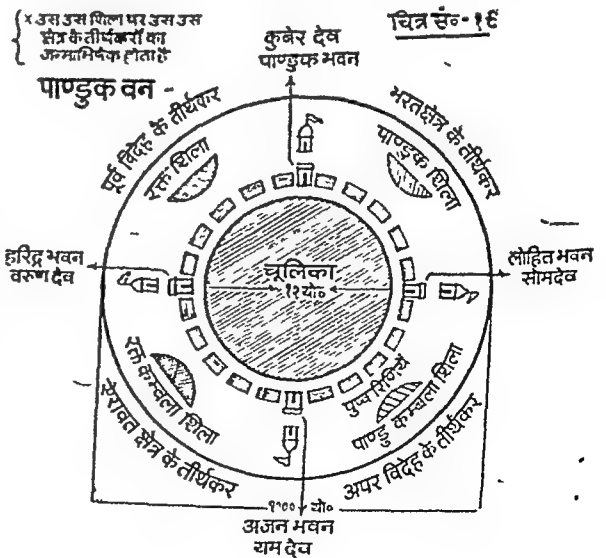 × उस उस शिला पर उस उस
क्षेत्र के तीर्थकरों का
जन्माभिषेक होता है
चित्र सं०-१६
कुबेर देव
पाण्डुक भवन
पाण्डुक वन -
पूर्व विदेह के तीर्थकर
भरतक्षेत्र के तीर्थकर
रक्त शिला
पाण्डुक शिला
हरिद्र भवन
वरुण देव
चूलिका
१२ यो०
लोहित भवन
सोमदेव
रक्त कम्बला शिला
ऐरावत क्षेत्र के तीर्थकर
पुष्करिणियें
पाण्डु कम्बला शिला
अपर विदेह के तीर्थकर
१००० यो०
अजन भवन
यम देव